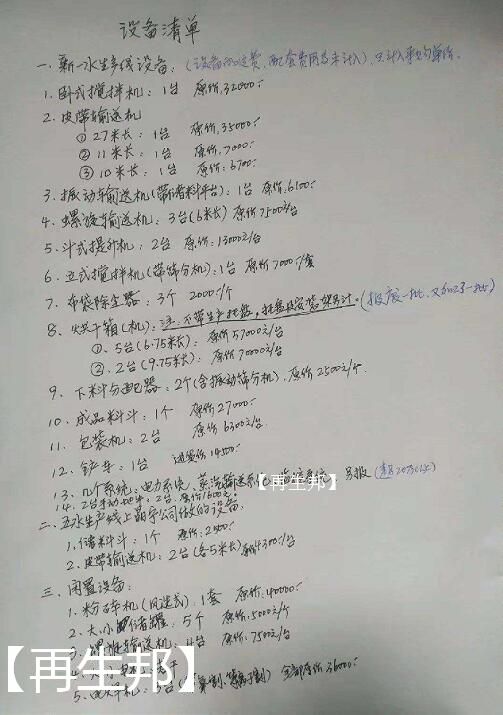 设备清单
一、新一水生产线设备：（设备的运费、配套费用均未计入），只计入采购单价.
1. 卧式搅拌机：1台 原价.32000.-
2. 皮带输送机
① 27米长：1台 原价.35000.-
② 11米长：1台 原价.7000.-
③ 10米长：1台 原价：6700.-
3. 振动输送机（带储料平台）：1台 原价.6100.-
4. 螺旋输送机：3台（6米长）原价7500元/台
5. 斗式提升机：2台 原价：13000元/台
6. 立式搅拌机（带筛分机）：1台 原价7000.-/套
7. 布袋除尘器：3个 2000.-/个
8. 烘干箱（机）：注：不带生产托盘，托盘及安装架另计.（报废一批、又
①、5台（6.75米长）：原价57000元/台
②、2台（9.75米长）：原价70000元/台
9、下料分配器：2个（含振动筛分机）. 原价2500元/个.
10. 成品料斗：1个 原价27000.-
11. 包装机：2台 原价6300元/台.
12. 铲车：1台 14500.-
13. 几个系统：电力系统、蒸汽输送系统 另报
【再生邦】
14. 2台 原价1600元.
二、五水生产线上 公司做的设备：
1. 储料斗：1个 原价：2500.-
2. 皮带输送机：2台（各5米长）原价4300/台
三、闲置设备：
1. 粉碎机（风选式）：1套 原价：40000.-
2. 大、小 储罐：5个 原价：5000元/个
3. 螺旋输送机：4台 原价：7500元/台
【再生邦】
5. 全部原价：36000.-